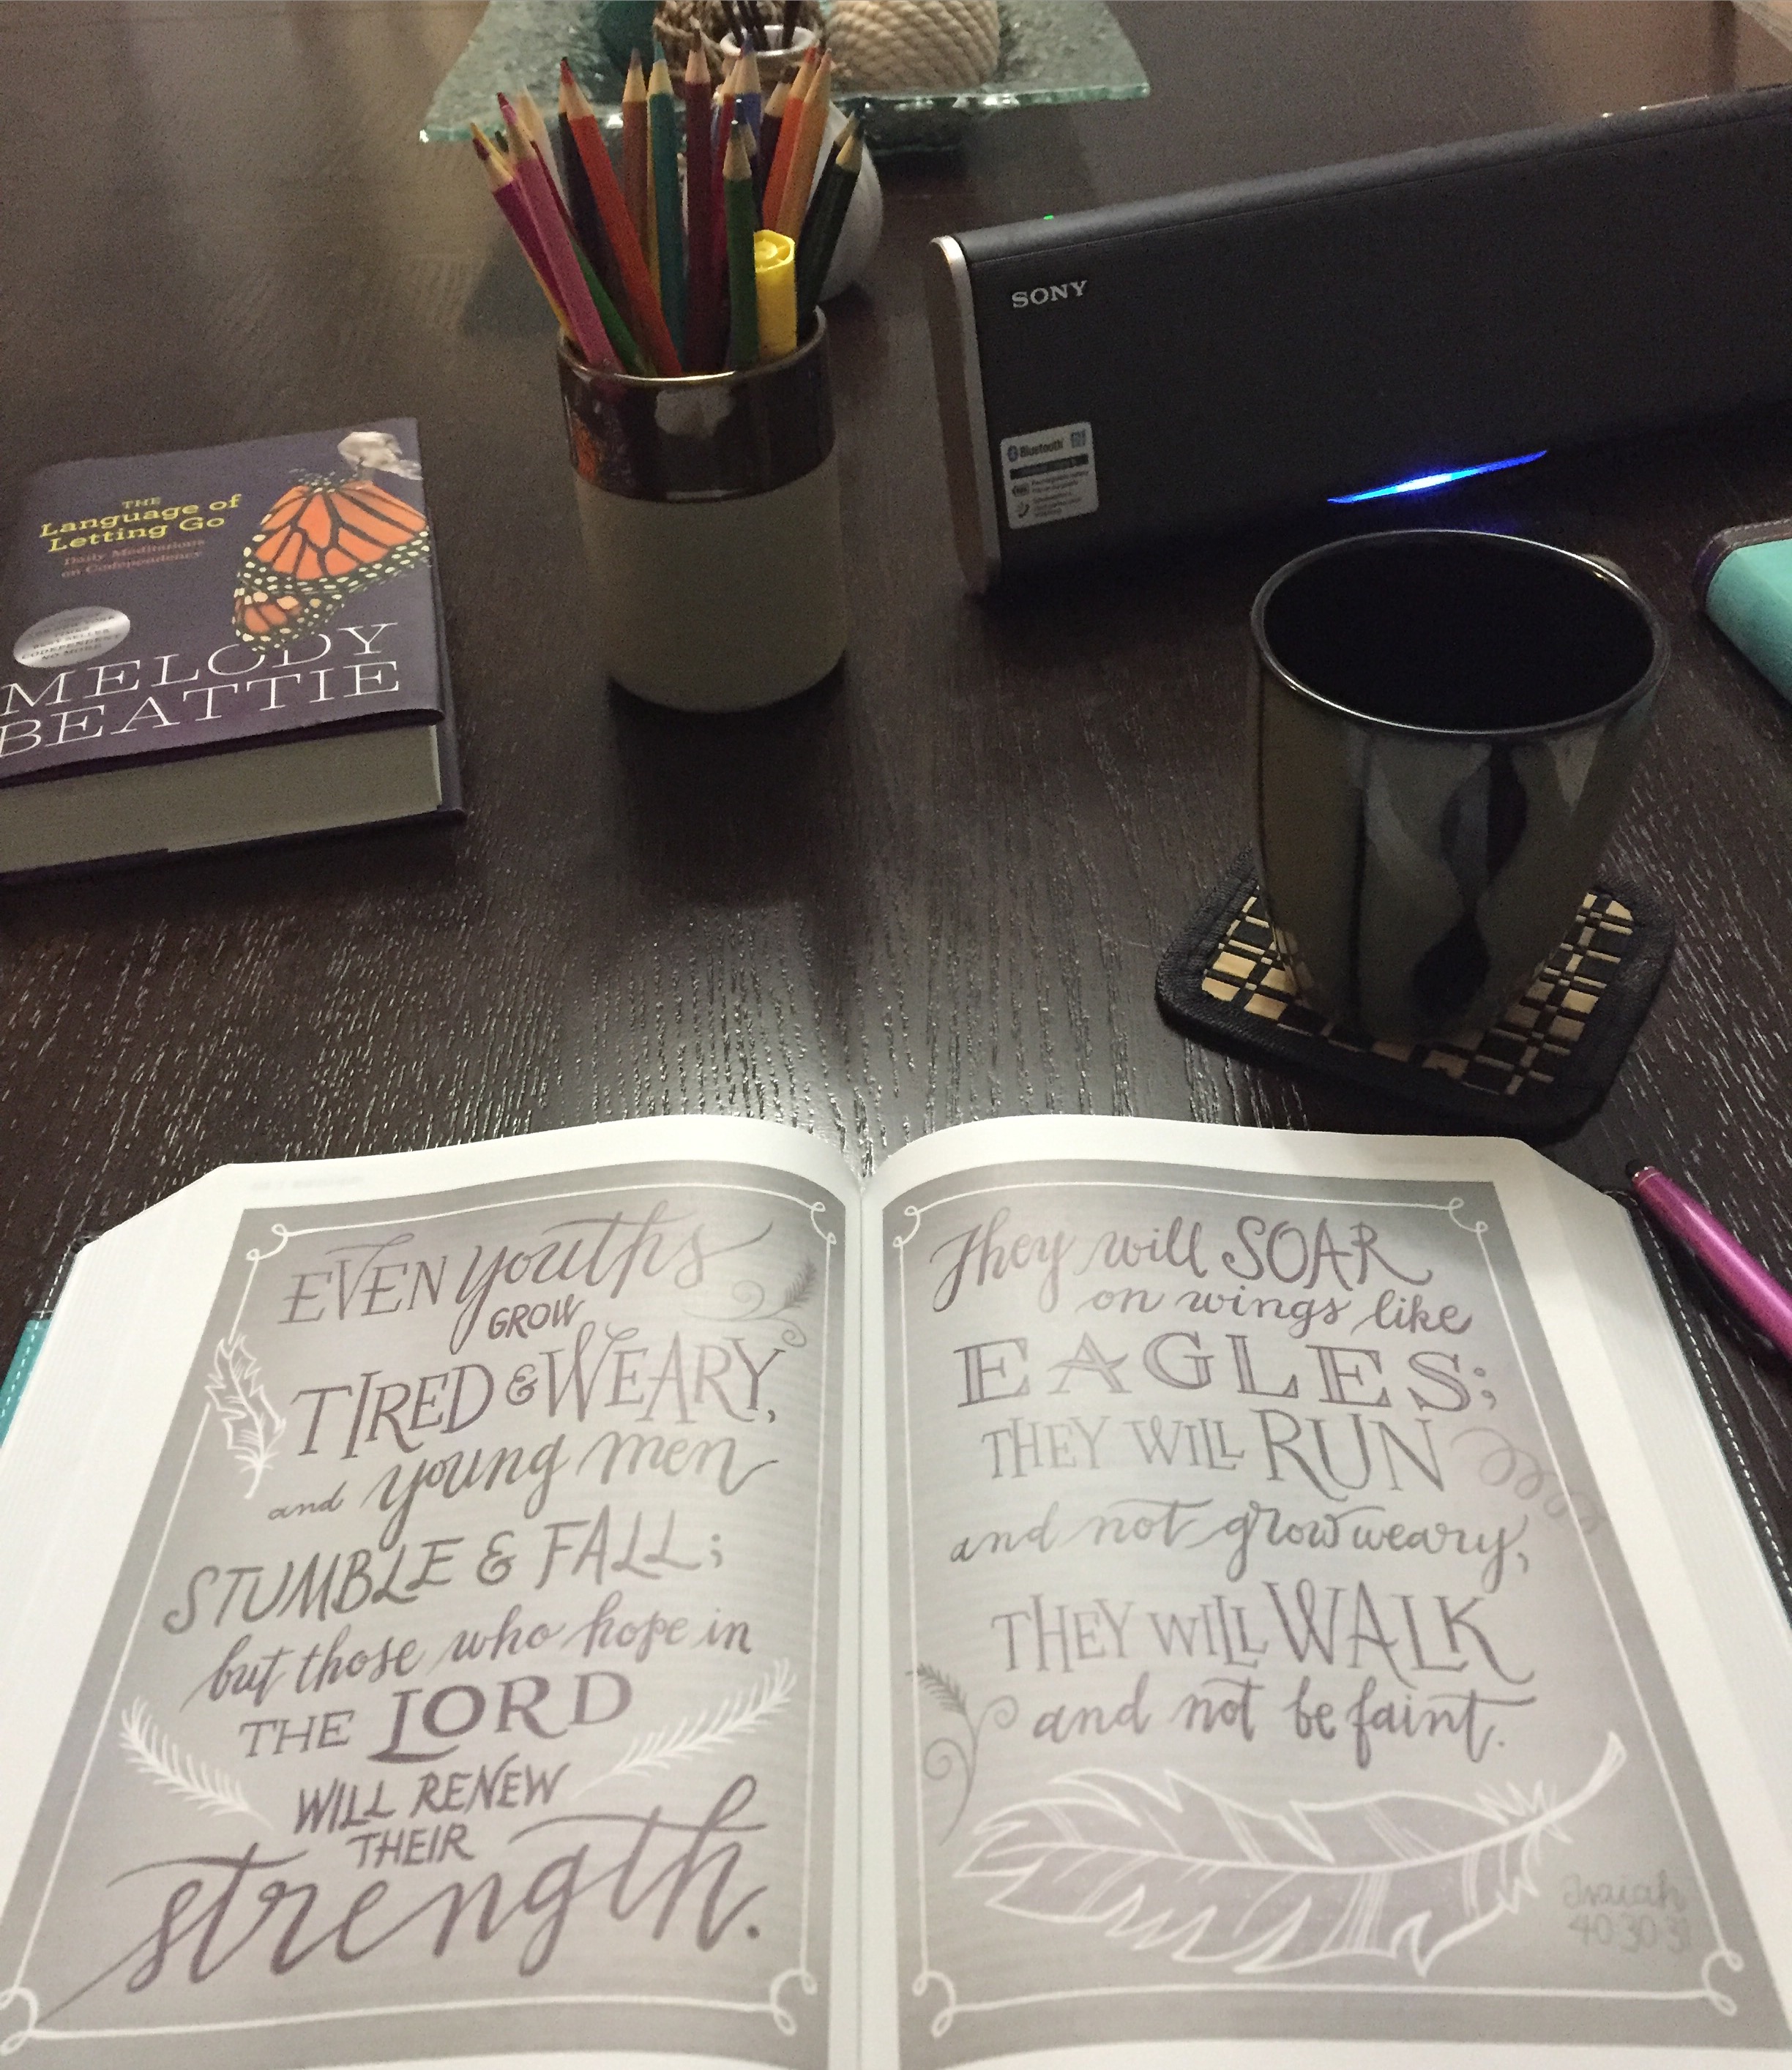 SONY
Bluetooth
THE
Language of
Letting Go
Daily Meditations
on Codependency
BEST SELLER
CODEPENDENT
NO MORE
MELODY
BEATTIE
EVEN youths
GROW
TIRED & WEARY,
and young men
STUMBLE & FALL;
but those who hope in
THE LORD
WILL RENEW
THEIR
strength.
They will SOAR
on wings like
EAGLES;
THEY WILL RUN
and not grow weary,
THEY WILL WALK
and not be faint.
Isaiah
40:30-31